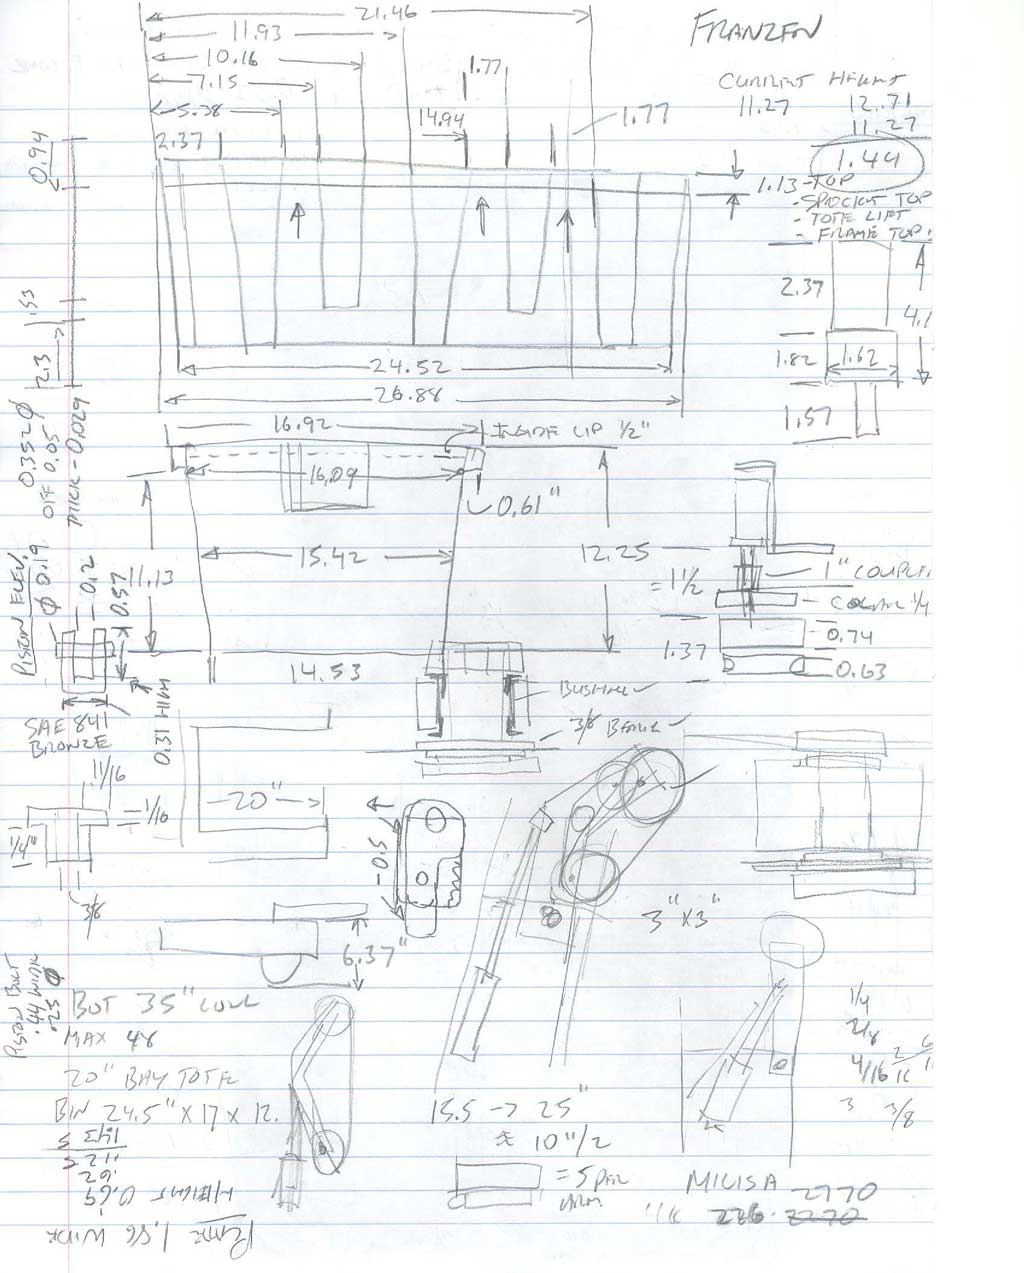 21.46
FRANZEN
11.93
10.16
1.77
CURRENT HEIGHT
7.15
11.27
12.71
5.38
11.27
14.94
1.77
2.37
1.44
0.94
1.13 - TOP
- SPROCKET TOP
- TOTE LIFT
- FRAME TOP
2.37
.53
4.1
2.3
24.52
1.82
1.62
26.88
1.57
16.92
INSIDE LIP 1/2"
0.352 Ø
OFF 0.05
THICK - 0.029
16.09
0.61"
PISTON ELEV.
Ø 0.19
0.2
0.57
11.13
15.42
12.25
= 1 1/2
1" COUPLE
COLLAR 1/4
0.74
1.37
0.63
14.53
0.31 HIGH
SAE 841
BRONZE
11/16
1/16
1/4"
3/8
20"
0.5
3" X 3"
6.37"
PISTON BOLT
.44 WIDE
.25 Ø
BOT 35"
MAX 48
20" BAY TOTE
BIN 24.5" X 17 X 12.
15.5 → 25"
≈ 10"/2
1/4
2/8
4/16
3
3/8
HEIGHT 0.69
1.86 WIDE
MILISA 2770